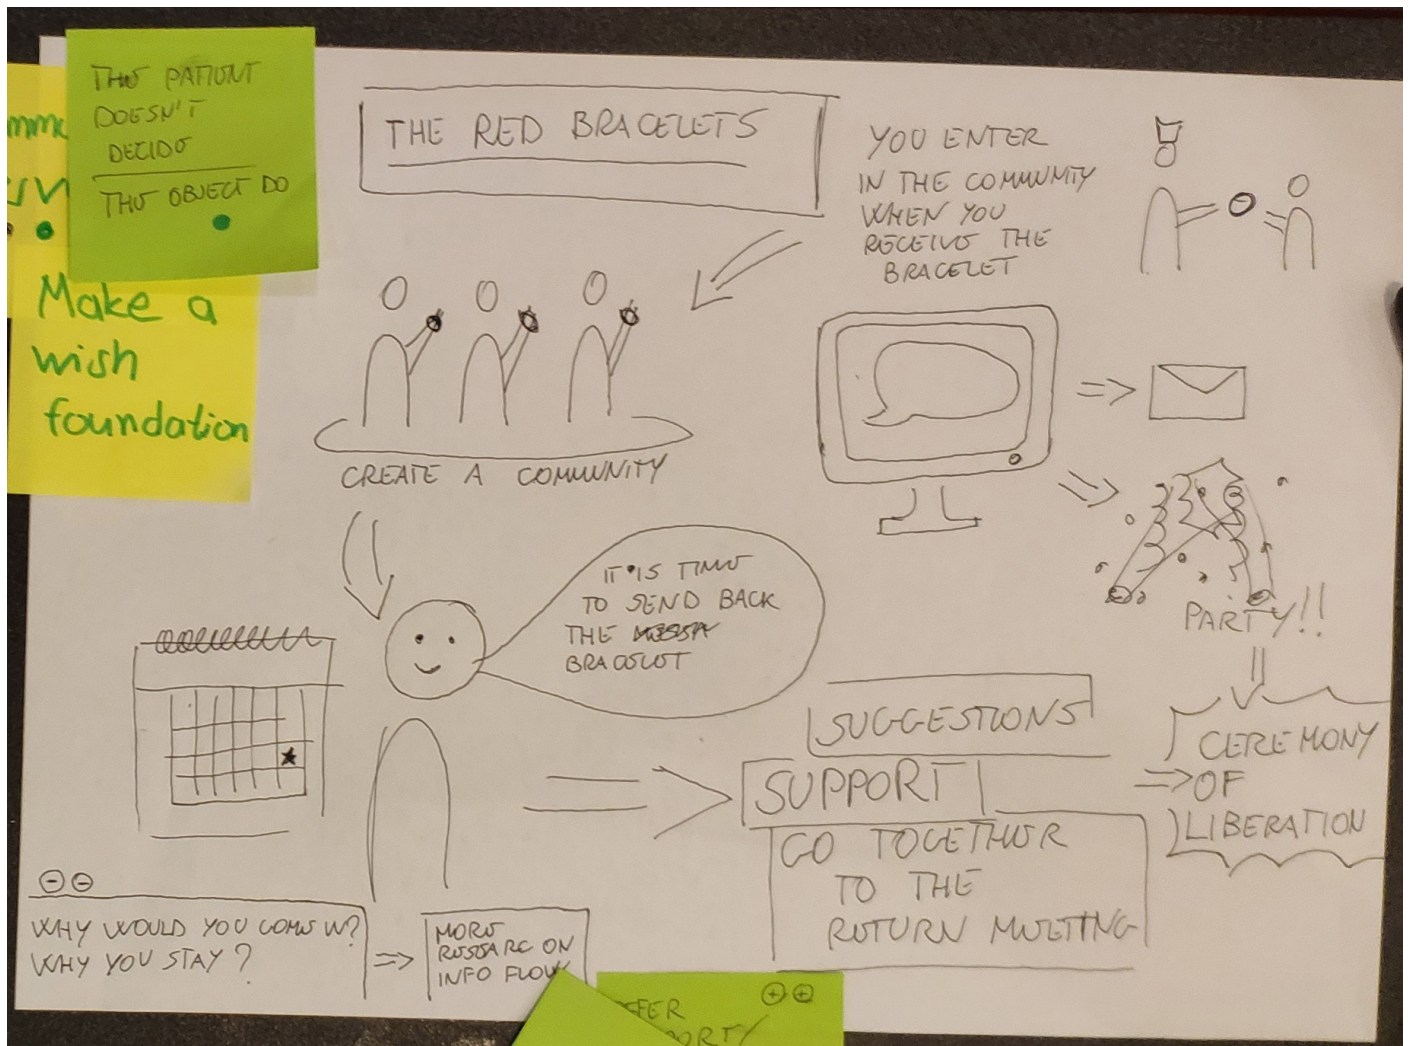 THE PATIENT
DOESN'T
DECIDE
THE OBJECT DO
Make a
wish
foundation
THE RED BRACELETS
YOU ENTER
IN THE COMMUNITY
WHEN YOU
RECEIVE THE
BRACELET
CREATE A COMMUNITY
IT IS TIME
TO SEND BACK
THE
BRACELET
PARTY!!
SUGGESTIONS
SUPPORT
GO TOGETHER
TO THE
RETURN MEETING
CEREMONY
OF
LIBERATION
WHY WOULD YOU COME IN?
WHY YOU STAY?
MORE
RESEARC ON
INFO FLOW